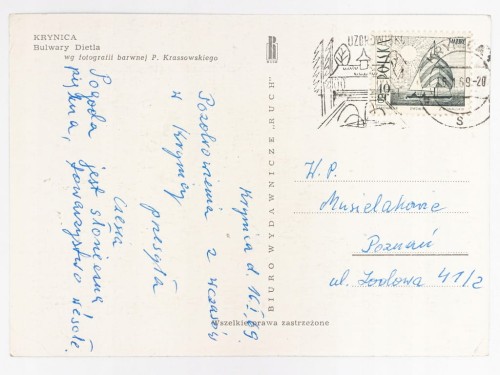 KRYNICA
Bulwary Dietla
wg fotografii barwnej P. Krassowskiego
BIURO WYDAWNICZE „RUCH"
Wszelkie prawa zastrzeżone
UZDROWISKO
POLSKA
KRYNICA
69-20
S
Krynica d. 16.I.69.
Pozdrowienia z wczasów
w Krynicy
przesyła
Czesia
Pogoda jest słoneczna
piękna, towarzystwo wesołe.
W.P.
Musielakowie
Poznań
ul. Jodłowa 41/2